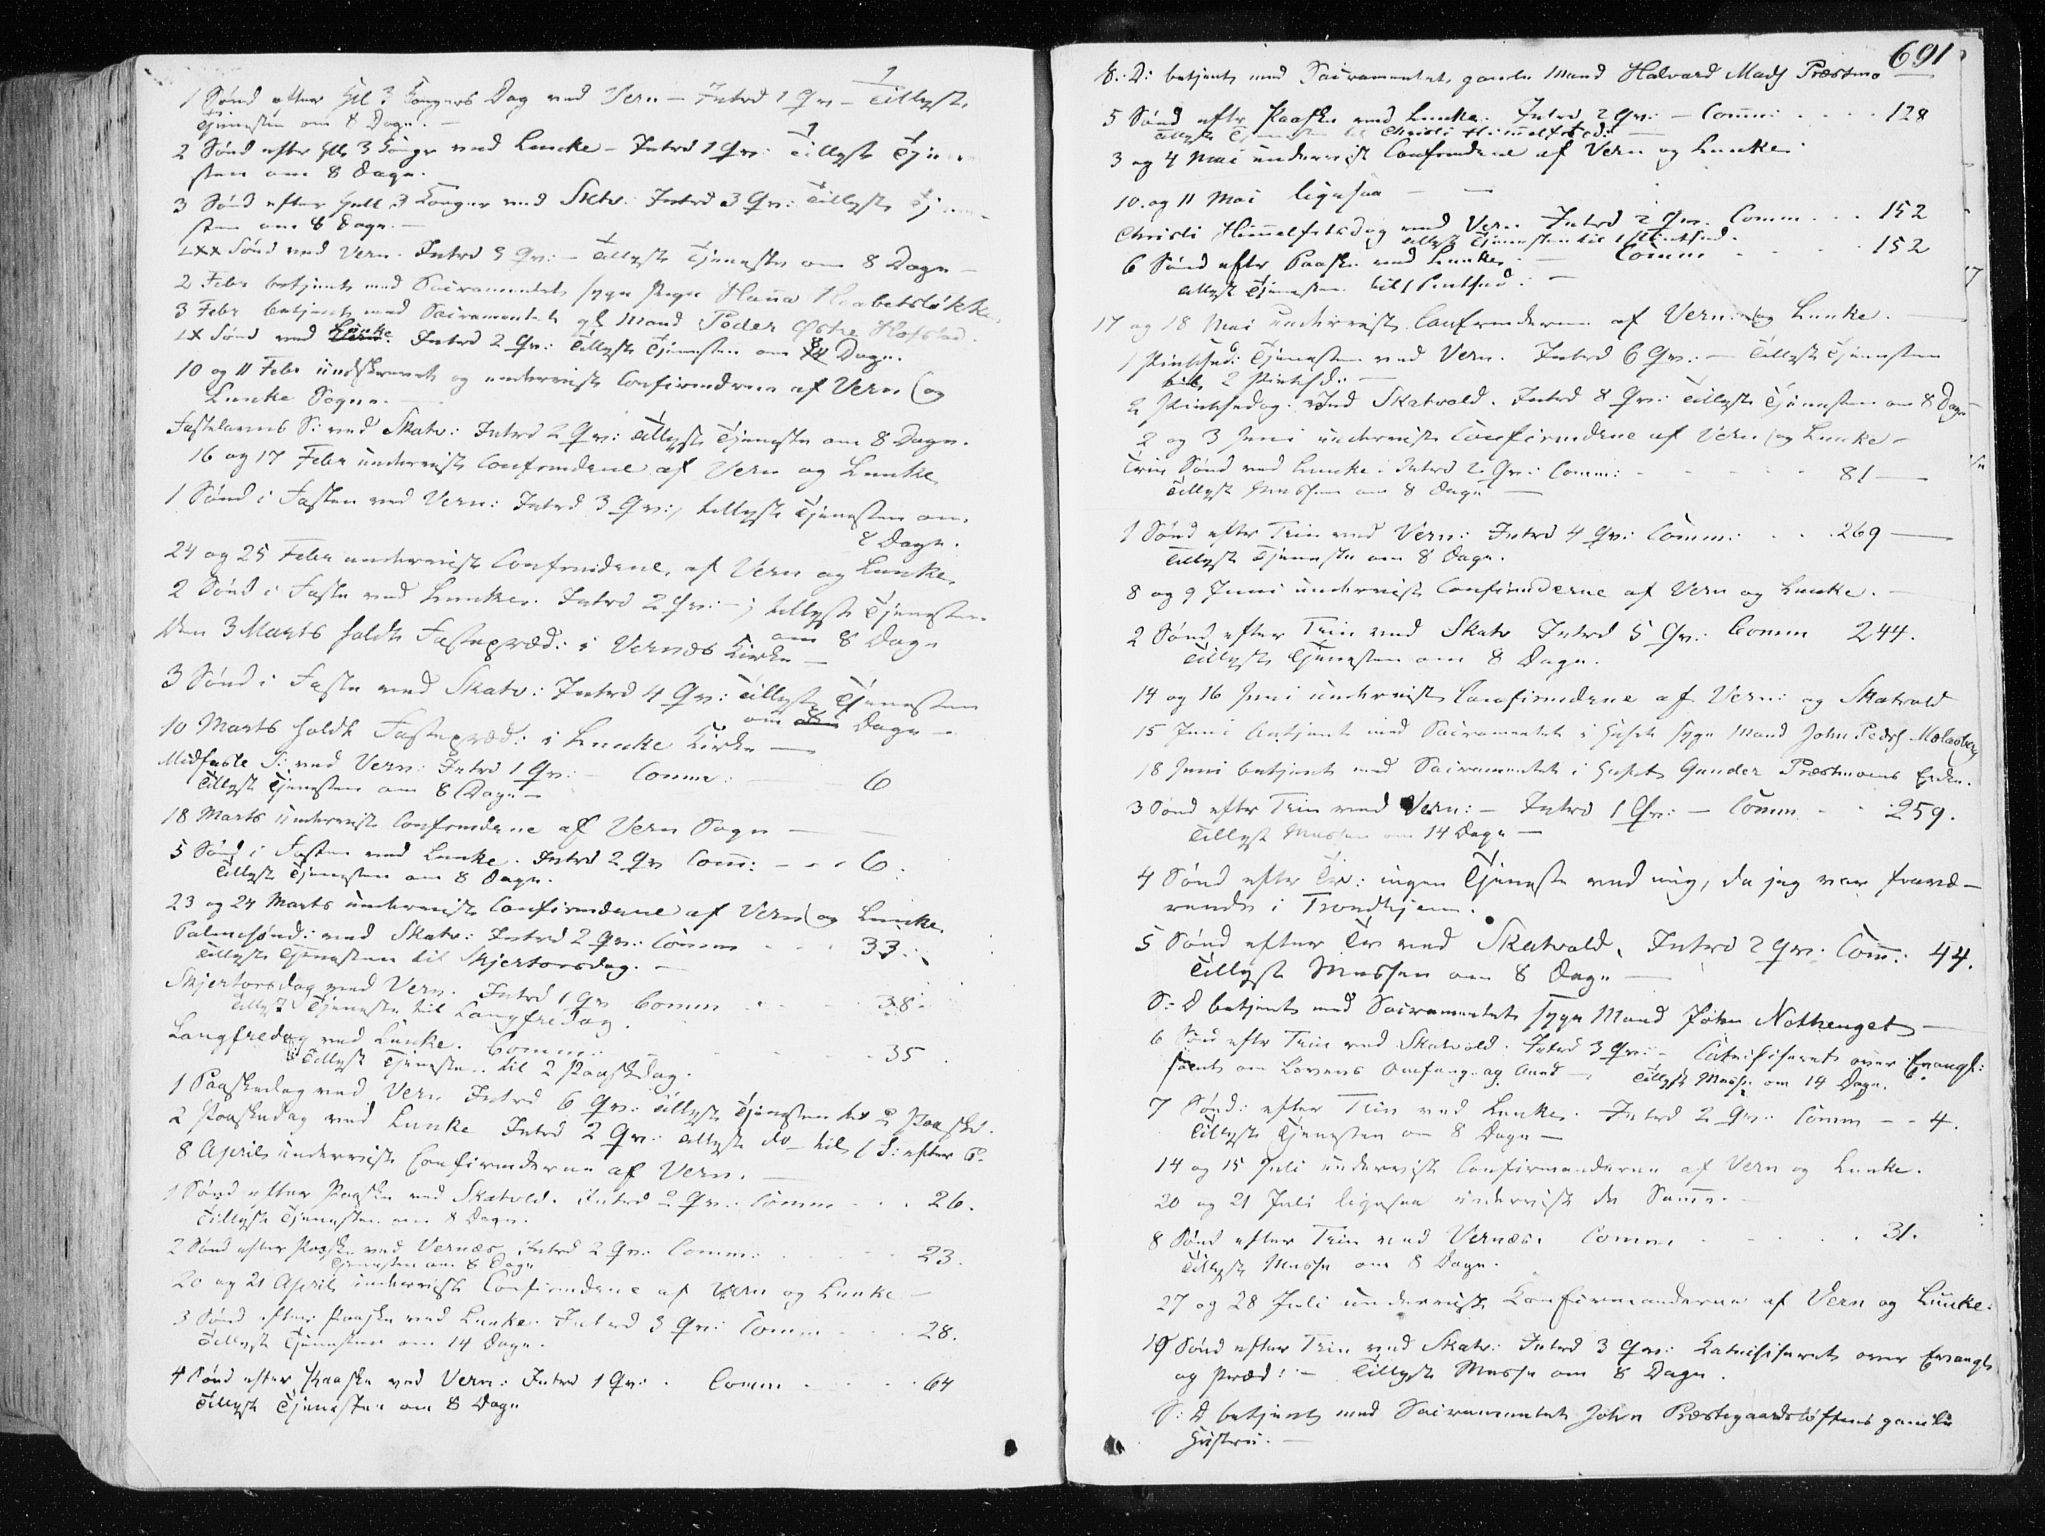 1 Sønd efter Hll 3 Kongers Dag ved Vern – Introd 1 Qv – Tillyst
Tjenesten om 8 Dage. –
2 Sønd efter Hll 3 Konger ved Lunke – Introd 1 Qv: Tillyst Tjene
sten om 8 Dage.
3 Sønd efter Hell 3 Konger ved Skatv: Introd 3 Qv: Tillyst Tjene
sten om 8 Dage. –
LXX Sønd ved Vern. Introd 3 Qv: – Tillyst Tjenesten om 8 Dage –
2 Febr betjent med Sacramentet syge Pige Hanna Haabetsløkke
3 Febr betjent med Sacramentet gl Mand Peder Østre Hofstad.
LX Sønd ved Lunke Introd 2 Qv: Tillyst Tjenesten om 8 Dage.
10 og 11 Febr indskrevet og underviist Confirmdene af Vern og
Lunke Sogne. –
Fastelavns S: ved Skatv: Introd 2 Qv: Tillyst Tjeneste om 8 Dage.
16 og 17 Febr underviist Confirmdene af Vern og Lunke
1 Sønd i Fasten ved Vern: Introd 3 Qv:, tillyst Tjenesten om
8 Dage.
24 og 25 Febr underviist Confrmdene af Vern og Lunke.
2 Sønd i Faste ved Lunke. Introd 2 Qv: –; tillyst Tjenesten
om 8 Dage
Den 3 Marts holdt Fastepræd: i Vernæs Kirke –
3 Sønd i Faste ved Skatv: Introd 4 Qv: Tillyst Tjenesten
om Dage –
10 Marts holdt Fastepræd: i Lunke Kirke –
Midfaste S: ved Vern: Introd 1 Qv: – Comm: – 6
Tillyst Tjenesten om 8 Dage –
18 Marts underviist Confrmdene af Vern Sogn –
5 Sønd i Fasten ved Lunke. Introd 2 Qv Com: – – – 6.
Tillyst Tjenesten om 8 Dage.
23 og 24 Marts underviist Confirmdene af Vern og Lunke
Palmesønd: ved Skatv: Introd 2 Qv: Comm . . . 33.
Tillyst Tjenesten til Skjertorsdag. –
Skjertorsdag ved Vern. Introd 1 Qv Comm . . . 38.
Tillyst Tjeneste til Langfredag.
Langfredag ved Lunke. Comm: . . . 35
Tillyst Tjeneste til 2 Paaskdag.
1 Paaskedag ved Vern Introd 6 Qv: tillyst Tjenesten til 2 Paaskd.
2 Paaskedag ved Lunke Introd 2 Qv: tillyst do – til 1 S: efter P.
8 April underviist Confirmderne af Vern. –
1 Sønd efter Paaske ved Skatvold. Introd 2 Qv: Comm . . . 26.
Tillyst Tjenesten om 8 Dage.
2 Sønd efter Paaske ved Vernæs. Introd 2 Qv: Comm: . . . 23.
Tjenesten om 8 Dage
20 og 21 April underviist Confirmdene af Vern og Lunke –
3 Sønd efter Paaske ved Lunke. Introd 3 Qv: Comm . . . 28.
Tillyst Tjenesten om 14 Dage.
4 Sønd efter Paaske ved Vern: Introd 1 Qv: . Comm . . . 64
Tillyst Tjenesten om 8 Dage
691
S: D: betjent med Sacramentet gamle Mand Halvard Mads Præstmo
5 Sønd efter Paaske ved Lunke. Introd 2 Qv: – Comm: . . . . 128
Tillyst Tjenesten til Christi Himmelfartsd: –
3 og 4 Mai underviist Confrmdene af Vern og Lunke.
10. og 11 Mai ligesaa – –
Christi Himmelfartsdag ved Vern Introd 2 Qv. Comm . . . 152
tillyst Tjenesten til
6 Sønd efter Paaske ved Lunke. – Comm . . 152
tillyst Tjenesten til 1 Pintsed: –
17 og 18 Mai underviist Confrmderne af Vern: og Lunke. –
1 Pintsed: Tjenesten ved Vern. Introd 6 Qv: – Tillyst Tjenesten
til 2 Pintsd: –
2 Pintsedag: ved Skatvold. Introd 8 Qv: Tillyst Tjenesten om 8 Dage
2 og 3 Juni underviist Confirmdene af Vern og Lunke –
Trin Sønd ved Lunke: Introd 2 Qv: Comm: . . . 81 –
Tillyst Messen om 8 Dage –
1 Sønd efter Trin ved Vern: Introd 4 Qv: Comm: . . . 269 –
Tillyst Tjeneste om 8 Dage.
8 og 9 Juni underviist Confirmderne af Vern og Lunke. –
2 Sønd efter Trin ved Skatv Introd 5 Qv: Comm 244.
Tillyst Tjenesten om 8 Dage.
14 og 16 Juni underviist Confirmdene af Vern: og Skatvold
15 Juni betjent med Sacramentet i Huset syge Mand John Peders Mælaaberg
18 Juni betjent med Sacramentet i Huset Gunder Præstmoens Enke.
3 Sønd efter Trin ved Vern: – Introd 1 Qv: – Comm . . . 259.
Tillyst Messen om 14 Dage –
4 Sønd efter Tr: ingen Tjeneste ved mig, da jeg var fravæ–
rende i Trondhjem.
5 Sønd efter Tr ved Skatvold. Introd 2 Qv: Com: 44.
Tillyst Messen om 8 Dage –
S: D betjent med Sacramentet syge Mand John Nothenget –
6 Sønd efter Trin ved Skatvold. Introd 3 Qv: – Catechiseret over Evangl:
samt om Lovens Omfang og Aand – Tillyst Messe om 14 Dage.
7 Sønd: efter Trin ved Lunke. Introd 2 Qv: Comm – – 4.
Tillyst Tjenesten om 8 Dage –
14 og 15 Juli underviist Confirmanderne af Vern og Lunke.
20 og 21 Juli ligesaa underviist de Samme. –
8 Sønd efter Trin ved Vernæs. Comm . . . . . 31.
Tillyst Messe om 8 Dage.
27 og 28 Juli underviist Konfirmanderne af Vern og Lunke.
19 Sønd efter Trin ved Skatv: Introd 3 Qv: Katechiseret over Evangl
og Præd: – Tillyst Messe om 8 Dage.
S: D betjent med Sacramentet John Præstegaardsløftens gamle
Hustru. –